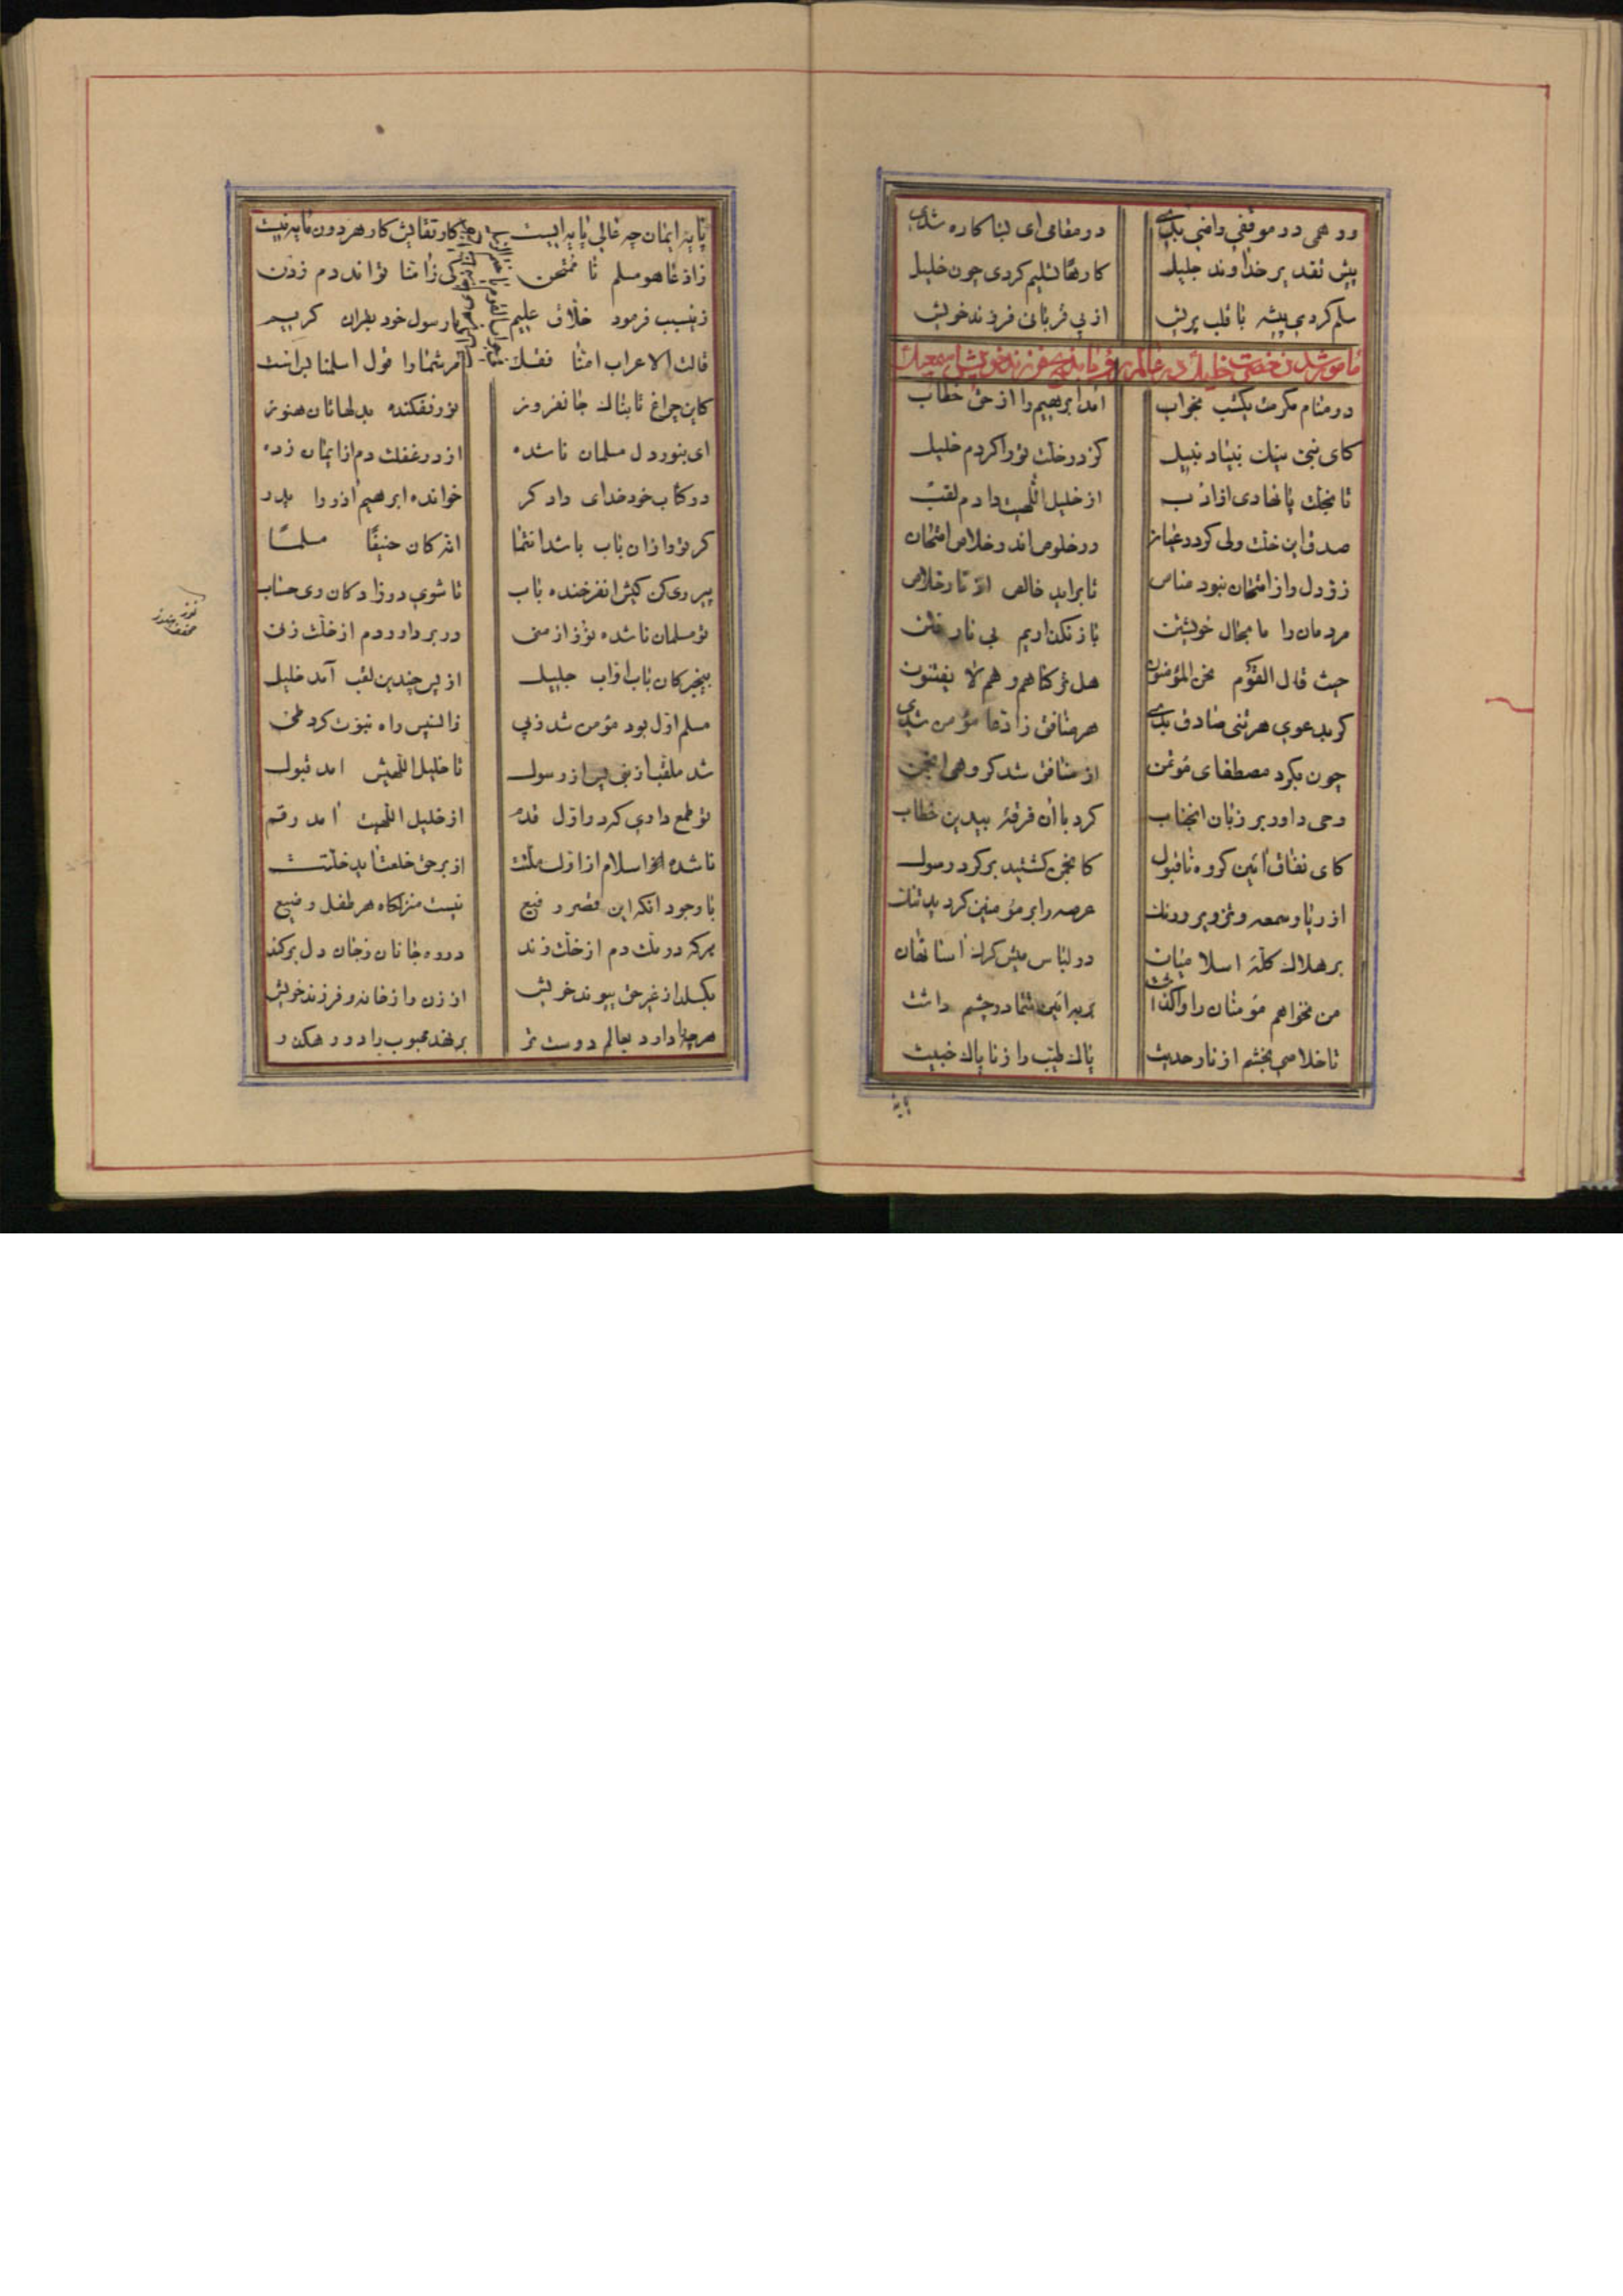 ور همی در موقفی راضی بدی در مقامی ای بسا کاره شدی
پیش تقدیر خداوند جلیل کارها تسلیم کردی چون خلیل
سلم کردی پیشه با قلب پریش از پی قربانی فرزند خویش
مامور شدن حضرت خلیل در عالم رؤیا فرزند خویش اسمعیل
در منام مکرمت یکشب بخواب آمد ابرهیم را از حق خطاب
کای نبی نیک بنیاد نبیل کز در خلت تو را کردم خلیل
تا بجنّت پا نهادی از ادب از خلیل اللهیت دادم لقب
صدق این خلت ولی گردد عیان در خلوص اندر خلاص امتحان
زر دل را ز امتحان نبود مناص تا براید خالص از نار خلاص
مردمان را ما بحال خویشتن باز نگذاریم بی نار فتن
حیث قال القوم نحن المؤمنون هل ترکناهم و هم لا یفتنون
گر بدعوی هر تنی صادق بدی هر منافق زادعا مؤمن شدی
چون بگرد مصطفای مؤتمن از منافق شد گروهی انجمن
وحی داور بر زبان انجناب کرد با آن فرقهٔ بیدین خطاب
کای نفاق آئین گروه ناقبول کانجمن گشتید بر گرد رسول
از ریا و سمعه و تزویر و رنگ عرصه را بر مؤمنین کردید تنگ
بر هلاک گلهٔ اسلامیان در لباس میش گرگ آسا نهان
من نخواهم مؤمنان را واگذاشت بر به آئین شما در چشم داشت
تا خلاصی بخشم از نار حدیث پاک طیّب را ز ناپاک خبیث
پایه
پایهٔ ایمان چه عالی پایه ایست کار نقالیش کار هر دون مایه نیست
زادعا هو مسلم نا ممتحن کی ز آمنّا تواند دم زدن
زینسبب فرمود خلاق علیم با رسول خود بقران کریم
قالت الاعراب امنّا فقل مر شما را قول اسلمنا بر انست
کاین چراغ تابناک جانفروز نور نفکنده بدلهاتان هنوز
ای بنور دل مسلمان ناشده از در غفلت دم از ایمان زده
در کتاب خود خدای دادگر خوانده ابرهیم آذر را پدر
گر تو را زان باب باشد انتما انه کان حنیفًا مسلمًا
پیروی کن کیش انفرخنده باب تا شوی در زادگان وی حساب
تو مسلمان ناشده تو ز از منی در بر داور دم از خلت زنی
بیخبر کان باب اوّاب جلیل از پس چندین لقب آمد خلیل
مسلم اوّل بود مؤمن شد ز پی زانسپس راه نبوّت کرد طی
شد ملقّب از نبی پس از رسول تا خلیل اللهیش آمد قبول
تو طمع داری که در اوّل قدم از خلیل اللهیت آمد رقم
ناشده اسلام از اوّل ملّتت از بر حق خلعت آید خلّتت
با وجود آنکه این قصر رفیع نیست منزلگاه هر طفل رضیع
هر که در ملک دم از خلت زند در ره جانان ز جان دل برکند
بگسلد از غیر حق پیوند خویش از زن و از خانه و فرزند خویش
هر چه را دارد بعالم دوست تر بر نهد محبوب را در رهگذر